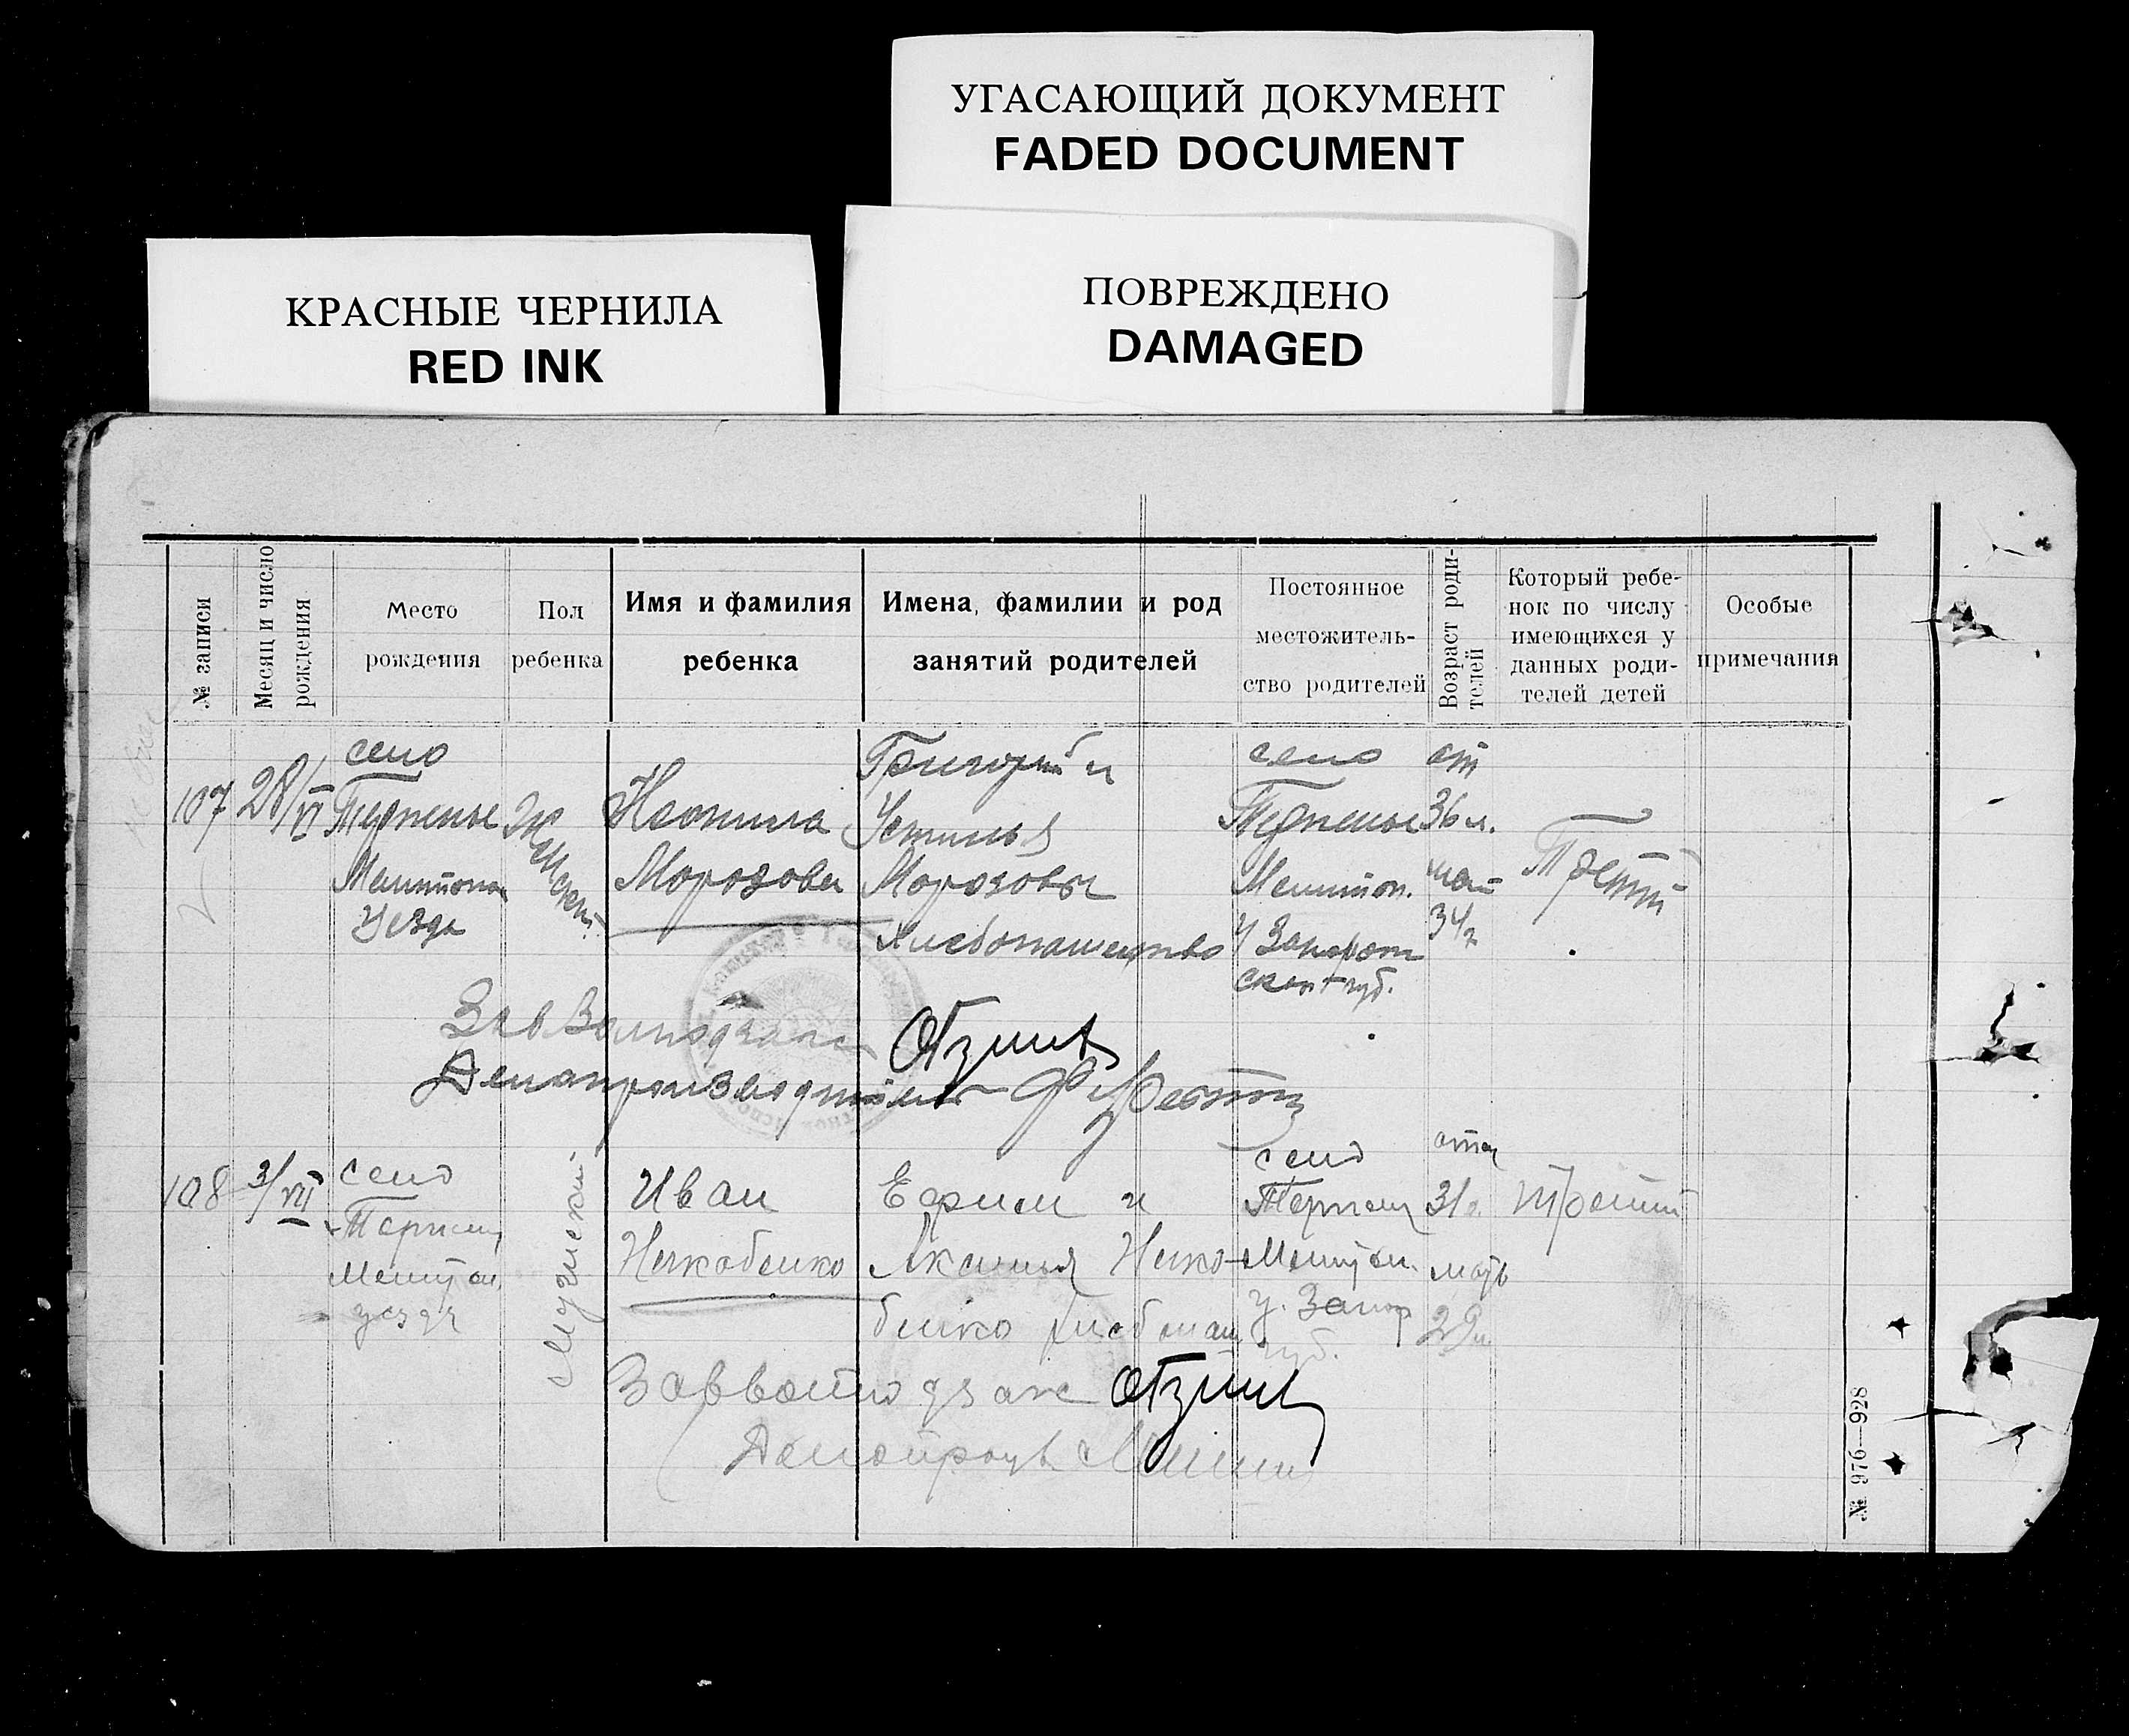 УГАСАЮЩИЙ ДОКУМЕНТ
FADED DOCUMENT
КРАСНЫЕ ЧЕРНИЛА
RED INK
ПОВРЕЖДЕНО
DAMAGED
№ записи
Месяц и число рождения
Место рождения
Пол ребенка
Имя и фамилия ребенка
Имена, фамилии и род занятий родителей
Постоянное местожитель-
ство родителей
Возраст роди-
телей
Который ребе-
нок по числу
имеющихся у
данных роди-
телей детей
Особые примечания
107
28/VI
село
Терпенье
Мелитопол
Уезда
Женский
Неонила
Морозова
Григорий и
Устинья
Морозовы
Хлебопашество
село
Терпенье
Мелитоп.
У Запорож
ской губ.
от
36 л.
мат
34
Третий
Зав Волподзагс
Делопроизводитель
108
3/VII
село
Терпень
Мелитоп.
уезда
Мужской
Иван
Ефим и
Аксинья
село
Терпень
Мелитоп.
у. Запор
губ.
отец
31
мать
29
третий
Завволподзагс
Делопроизв
№ 976—928